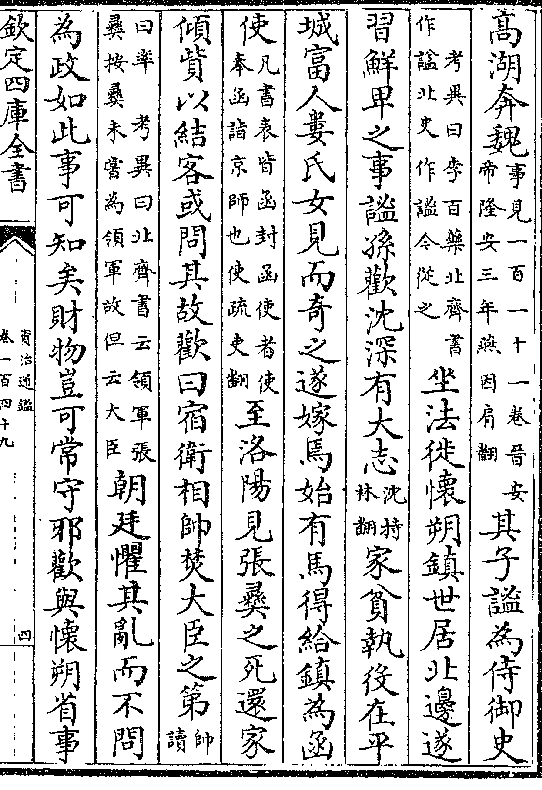 高湖奔魏事見一百一十一卷晉安帝隆安三年燕因肩翻其子謐為侍御史
考異曰李百藥北齊書作謐北史作謐今從之坐法徙懷朔鎮世居北邊遂
習鮮卑之事謐孫歡沈深有大志沈持林翻家貧執役在平
城富人婁氏女見而奇之遂嫁焉始有馬得給鎮為函
使凡書表皆函封函使者使奉函詣京師也使疏吏翻至洛陽見張彝之死還家
傾貲以結客或問其故歡曰宿衛相帥焚大臣之第帥讀
曰率考異曰北齊書云領軍張彝按彝未嘗為領軍故但云大臣朝廷懼其亂而不問
為政如此事可知矣財物豈可常守邪歡與懷朔省事
欽定四庫全書
資治通鑑
卷一百四十九
四